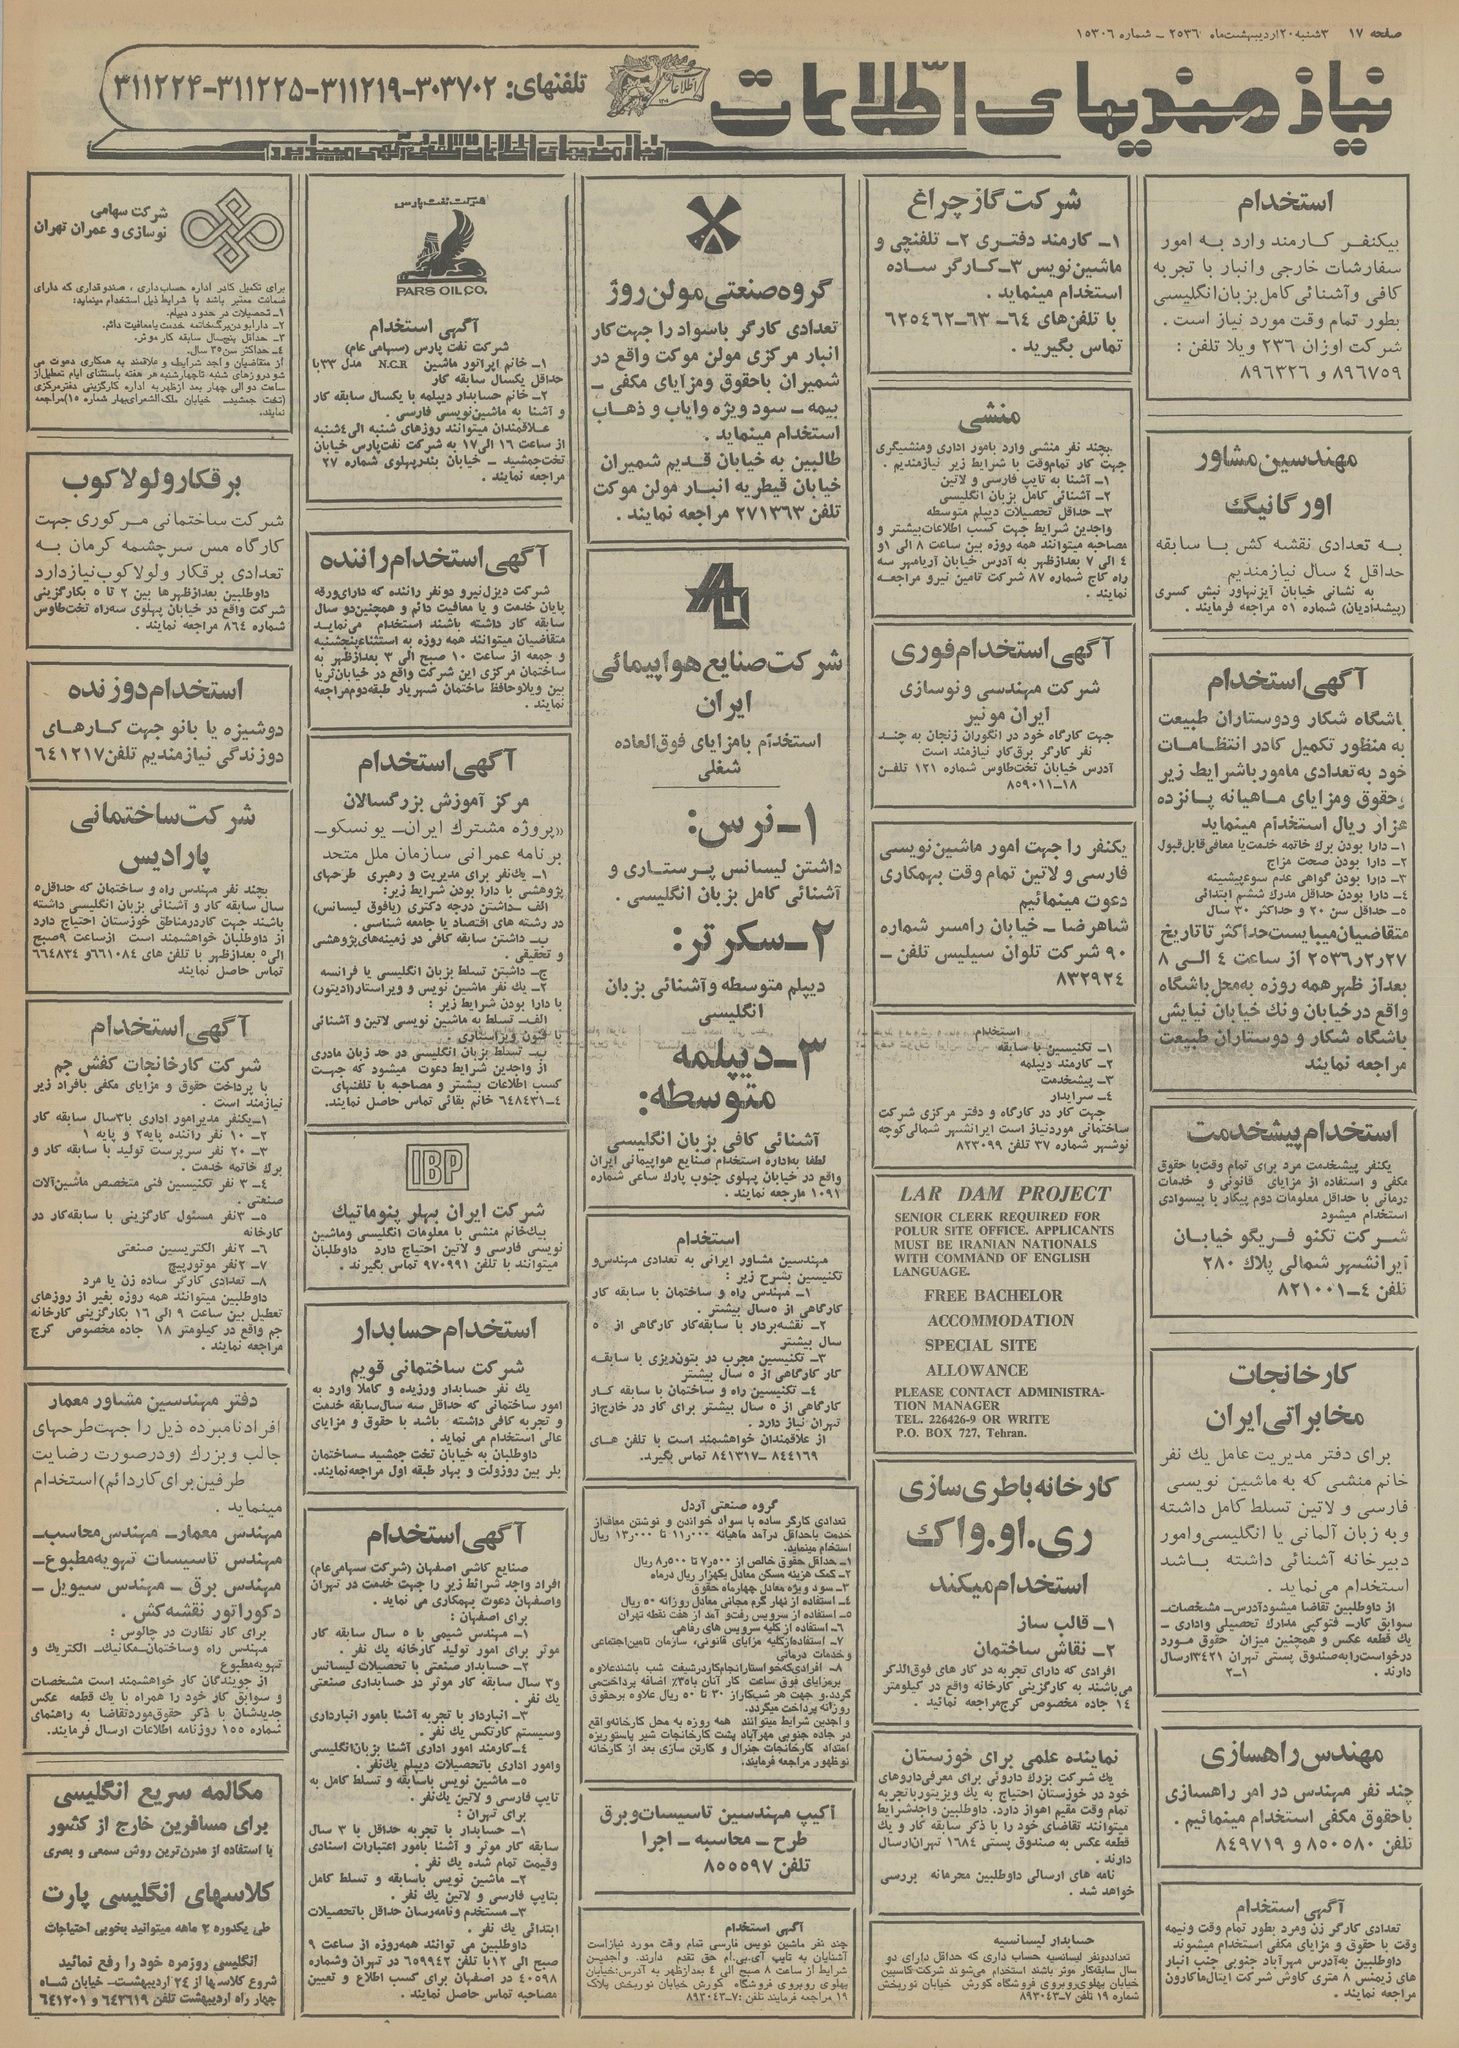 صفحه ۱۷ ۳شنبه ۲۰ اردیبهشت‌ماه ۲۵۳۶ ـ شماره ۱۵۳۰۶
نیازمندیهای اطلاعات
تلفنهای: ۳۰۳۷۰۲-۳۱۱۲۱۹-۳۱۱۲۲۵-۳۱۱۲۲۴
نیازمندیهای اطلاعات تلفنی آگهی میپذیرد
استخدام
بیکنفر کارمند وارد به امور
سفارشات خارجی و انبار با تجربه
کافی و آشنائی کامل بزبان انگلیسی
بطور تمام وقت مورد نیاز است .
شرکت اوزان ۲۳۶ ویلا تلفن :
۸۹۶۷۵۹ و ۸۹۶۳۲۶
مهندسین مشاور
اورگانیگ
به تعدادی نقشه کش با سابقه
حداقل ٤ سال نیازمندیم
به نشانی خیابان آیزنهاور نبش کسری
(پیشدادیان) شماره ۵۱ مراجعه فرمایند .
آگهی استخدام
باشگاه شکار و دوستاران طبیعت
به منظور تکمیل کادر انتظامات
خود به تعدادی مامور باشرایط زیر
وحقوق ومزایای ماهیانه پانزده
هزار ریال استخدام مینماید
۱ـ دارا بودن برك خاتمه خدمت یا معافی قابل قبول
۲ـ دارا بودن صحت مزاج
۳ـ دارا بودن گواهی عدم سوءپیشینه
٤ـ دارا بودن حداقل مدرك ششم ابتدائی
۵ـ حداقل سن ۲۰ و حداکثر ۳۰ سال
متقاضیان میبایست حداکثر تا تاریخ
۲۷ر۲ر۲۵۳۶ از ساعت ٤ الی ۸
بعداز ظهر همه روزه به محل باشگاه
واقع در خیابان ونك خیابان نیایش
باشگاه شکار و دوستاران طبیعت
مراجعه نمایند
استخدام پیشخدمت
یکنفر پیشخدمت مرد برای تمام وقت با حقوق
مکفی و استفاده از مزایای قانونی و خدمات
درمانی با حداقل معلومات دوم پیکار با بیسوادی
استخدام میشود
شرکت تکنو فریگو خیابان
ایرانشهر شمالی پلاك ۲۸۰
تلفن ٤ـ۸۲۱۰۰۱
کارخانجات
مخابراتی ایران
برای دفتر مدیریت عامل یك نفر
خانم منشی که به ماشین نویسی
فارسی و لاتین تسلط کامل داشته
و به زبان آلمانی یا انگلیسی و امور
دبیرخانه آشنائی داشته باشد
استخدام می‌نماید .
از داوطلبین تقاضا میشود آدرس ـ مشخصات ـ
سوابق کار ـ فتوکپی مدارك تحصیلی و اداری ـ
یك قطعه عکس و همچنین میزان حقوق مورد
درخواست را به صندوق پستی تهران ۳٤۲۱ ارسال
دارند . ۱ـ۲
مهندس راهسازی
چند نفر مهندس در امر راهسازی
باحقوق مکفی استخدام مینمائیم .
تلفن ۸۵۰۵۸۰ و ۸٤۹۷۱۹
آگهی استخدام
تعدادی کارگر زن ومرد بطور تمام وقت ونیمه
وقت با حقوق و مزایای مکفی استخدام میشوند
داوطلبین به‌آدرس مهرآباد جنوبی جنب انبار
های زیمنس ۸ متری کاوش شرکت ایتال‌ماکارون
مراجعه نمایند .
شرکت گاز چراغ
۱ـ کارمند دفتری ۲ـ تلفنچی و
ماشین‌نویس ۳ـ کارگر ساده
استخدام مینماید .
با تلفن‌های ٦٤-٦۳-٦۲۵٤٦۲
تماس بگیرید .
منشی
بچند نفر منشی وارد بامور اداری ومنشیگری
جهت کار تمام‌وقت با شرایط زیر نیازمندیم .
۱ـ آشنا به تایپ فارسی و لاتین
۲ـ آشنائی کامل بزبان انگلیسی
۳ـ حداقل تحصیلات دیپلم متوسطه
واجدین شرایط جهت کسب اطلاعات بیشتر و
مصاحبه میتوانند همه روزه بین ساعت ۸ الی ۱و
٤ الی ۷ بعدازظهر به آدرس خیابان آریامهر سه
راه کاج شماره ۸۷ شرکت تامین نیرو مراجعه
نمایند .
آگهی استخدام فوری
شرکت مهندسی ونوسازی
ایران مونیر
جهت کارگاه خود در انگوران زنجان به چند
نفر کارگر برق‌کار نیازمند است
آدرس خیابان تخت‌طاوس شماره ۱۲۱ تلفن
۱۸-۸۵۹۰۱۱
یکنفر را جهت امور ماشین‌نویسی
فارسی و لاتین تمام وقت بهمکاری
دعوت مینمائیم
شاهرضا ـ خیابان رامسر شماره
۹۰ شرکت تلوان سیلیس تلفن ـ
۸۳۲۹۲٤
استخدام
۱ـ تکنیسین با سابقه
۲ـ کارمند دیپلمه
۳ـ پیشخدمت
٤ـ سرایدار
جهت کار در کارگاه و دفتر مرکزی شرکت
ساختمانی موردنیاز است ایرانشهر شمالی کوچه
نوشهر شماره ۳۷ تلفن ۸۲۳۰۹۹
LAR DAM PROJECT
SENIOR CLERK REQUIRED FOR
POLUR SITE OFFICE. APPLICANTS
MUST BE IRANIAN NATIONALS
WITH COMMAND OF ENGLISH
LANGUAGE.
FREE BACHELOR
ACCOMMODATION
SPECIAL SITE
ALLOWANCE
PLEASE CONTACT ADMINISTRA-
TION MANAGER
TEL. 226426-9 OR WRITE
P.O. BOX 727, Tehran.
کارخانه باطری سازی
ری.او.واك
استخدام میکند
۱ـ قالب ساز
۲ـ نقاش ساختمان
افرادی که دارای تجربه در کار های فوق‌الذکر
می‌باشند به کارگزینی کارخانه واقع در کیلومتر
۱٤ جاده مخصوص کرج مراجعه نمائید .
نماینده علمی برای خوزستان
یك شرکت بزرك داروئی برای معرفی داروهای
خود در خوزستان احتیاج به یك ویزیتور باتجربه
تمام وقت مقیم اهواز دارد. داوطلبین واجدشرایط
میتوانند تقاضای خود را با ذکر سابقه کار و یك
قطعه عکس به صندوق پستی ۱٦۸٤ تهران ارسال
دارند .
نامه های ارسالی داوطلبین محرمانه بررسی
خواهد شد .
حسابدار لیسانسیه
تعداد دو نفر لیسانسیه حساب داری که حداقل دارای دو
سال سابقه‌کار موثر باشند استخدام می‌شوند شرکت کاسپین
خیابان پهلوی روبروی فروشگاه کورش خیابان نوربخش
شماره ۱۹ تلفن ۷-۸۹۳۰٤۳
گروه صنعتی مولن روژ
تعدادی کارگر باسواد را جهت کار
انبار مرکزی مولن موکت واقع در
شمیران باحقوق ومزایای مکفی ـ
بیمه ـ سود ویژه وایاب و ذهاب
استخدام مینماید .
طالبین به خیابان قدیم شمیران
خیابان قیطریه انبار مولن موکت
تلفن ۲۷۱۳٦۳ مراجعه نمایند .
شرکت صنایع هواپیمائی
ایران
استخدام بامزایای فوق‌العاده
شغلی
۱ـ نرس:
داشتن لیسانس پرستاری و
آشنائی کامل بزبان انگلیسی .
۲ـ سکرتر:
دیپلم متوسطه و آشنائی بزبان
انگلیسی
۳ـ دیپلمه
متوسطه:
آشنائی کافی بزبان انگلیسی
لطفا به‌اداره استخدام صنایع هواپیمائی ایران
واقع در خیابان پهلوی جنوب پارك ساعی شماره
۱۰۹۱ مراجعه نمایند .
استخدام
مهندسین مشاور ایرانی به تعدادی مهندس و
تکنیسین بشرح زیر :
۱ـ مهندس راه و ساختمان با سابقه کار
کارگاهی از ۵سال بیشتر .
۲ـ نقشه‌بردار با سابقه‌کار کارگاهی از ۵
سال بیشتر
۳ـ تکنیسین مجرب در بتون‌ریزی با سابقه
کار کارگاهی از ۵ سال بیشتر
٤ـ تکنیسین راه و ساختمان با سابقه کار
کارگاهی از ۵ سال بیشتر برای کار در خارج از
تهران نیاز دارد .
از علاقمندان خواهشمند است با تلفن های
۸٤٤۱٦۹-۸٤۱۳۱۷ تماس بگیرد.
گروه صنعتی آردل
تعدادی کارگر ساده با سواد خواندن و نوشتن معاف از
خدمت باحداقل درآمد ماهیانه ۰۰۰ر۱۱ تا ۰۰۰ر۱۳ ریال
استخدام مینماید.
۱ـ حداقل حقوق خالص از ۵۰۰ر۷ تا ۵۰۰ر۸ ریال
۲ـ کمک هزینه مسکن معادل یکهزار ریال درماه
۳ـ سود ویژه معادل چهارماه حقوق
٤ـ استفاده از نهار گرم مجانی معادل روزانه ۵۰ ریال
۵ـ استفاده از سرویس رفت و آمد از هفت نقطه تهران
٦ـ استفاده از کلیه سرویس های رفاهی
۷ـ استفاده از کلیه مزایای قانونی، سازمان تامین‌اجتماعی
و خدمات درمانی
۸ـ افرادی‌که خواستار انجام کار در شیفت شب باشند علاوه
برمزایای فوق ساعت کار آنان با ۳۵٪ اضافه پرداخت می
گردد و جهت هر شب‌کار از ۳۰ تا ۵۰ ریال علاوه برحقوق
روزانه پرداخت میگردد.
واجدین شرایط میتوانند همه روزه به محل کارخانه‌واقع
در جاده جنوبی مهرآباد پشت کارخانجات شیر پاستوریزه
امتداد کارخانجات جنرال و کارتن سازی بعد از کارخانه
نوظهور مراجعه فرمایند.
اکیپ مهندسین تاسیسات وبرق
طرح ـ محاسبه ـ اجرا
تلفن ۸۵۵۵۹۷
آگهی استخدام
چند نفر ماشین نویس فارسی تمام وقت مورد نیازاست
آشنایان به تایپ آی.بی.ام حق تقدم دارند. واجدین
شرایط از ساعت ۸ صبح الی ٤ بعدازظهر به آدرس:خیابان
پهلوی روبروی فروشگاه کورش خیابان نوربخش پلاك
۱۹ مراجعه فرمایند تلفن :۷-۸۹۳۰٤۳
شرکت نفت پارس
PARS OIL CO.
آگهی استخدام
شرکت نفت پارس (سهامی عام)
۱ـ خانم اپراتور ماشین N.C.R مدل ۳۳ با
حداقل یکسال سابقه کار
۲ـ خانم حسابدار دیپلمه با یکسال سابقه کار
و آشنا به ماشین‌نویسی فارسی .
علاقمندان میتوانند روزهای شنبه الی٤شنبه
از ساعت ۱٦ الی۱۷ به شرکت نفت‌پارس خیابان
تخت‌جمشید ـ خیابان بندرپهلوی شماره ۲۷
مراجعه نمایند .
آگهی استخدام راننده
شرکت دیزل‌نیرو دونفر راننده که دارای‌ورقه
پایان خدمت و یا معافیت دائم و همچنین‌دو سال
سابقه کار داشته باشند استخدام می‌نماید
متقاضیان میتوانند همه روزه به استثناءپنجشنبه
و جمعه از ساعت ۱۰ صبح الی ۳ بعدازظهر به
ساختمان مرکزی این شرکت واقع در خیابان‌ثریا
بین ویلاوحافظ ساختمان شهریار طبقه‌دوم‌مراجعه
نمایند .
آگهی استخدام
مرکز آموزش بزرگسالان
«پروژه مشترك ایران ـ یونسکو ـ
برنامه عمرانی سازمان ملل متحد
۱ـ یك‌نفر برای مدیریت و رهبری طرحهای
پژوهشی با دارا بودن شرایط زیر:
الف ـ داشتن درجه دکتری (یافوق لیسانس)
در رشته های اقتصاد یا جامعه شناسی .
ب ـ داشتن سابقه کافی در زمینه‌های‌پژوهشی
و تحقیقی .
ج ـ داشتن تسلط بزبان انگلیسی یا فرانسه
۲ـ یك نفر ماشین نویس و ویراستار(ادیتور)
با دارا بودن شرایط زیر :
الف ـ تسلط به ماشین نویسی لاتین و آشنائی
با فنون ویراستاری .
ب ـ تسلط بزبان انگلیسی در حد زبان مادری
از واجدین شرایط دعوت میشود که جهت
کسب اطلاعات بیشتر و مصاحبه با تلفنهای
٤-٦٤۸٤۳۱ خانم بقائی تماس حاصل نمایند.
IBP
شرکت ایران بهلر پنوماتیك
بیك‌خانم منشی با معلومات انگلیسی وماشین
نویسی فارسی و لاتین احتیاج دارد داوطلبان
میتوانند با تلفن ۹۷۰۹۹۱ تماس بگیرند .
استخدام حسابدار
شرکت ساختمانی قویم
یك نفر حسابدار ورزیده و کاملا وارد به
امور ساختمانی که حداقل سه سال‌سابقه خدمت
و تجربه کافی داشته باشد با حقوق و مزایای
عالی استخدام می نماید.
داوطلبان به خیابان تخت جمشید ـ ساختمان
بلر بین روزولت و بهار طبقه اول مراجعه‌نمایند.
آگهی استخدام
صنایع کاشی اصفهان (شرکت سهامی‌عام)
افراد واجد شرائط زیر را جهت خدمت در تهران
واصفهان دعوت بهمکاری می نماید .
برای اصفهان :
۱ـ مهندس شیمی با ۵ سال سابقه کار
موثر برای امور تولید کارخانه یك نفر .
۲ـ حسابدار صنعتی با تحصیلات لیسانس
و۳ سال سابقه کار موثر در حسابداری صنعتی
یك نفر .
۳ـ انباردار با تجربه آشنا بامور انبارداری
وسیستم کارتکس یك نفر .
٤ـ کارمند امور اداری آشنا بزبان‌انگلیسی
وامور اداری باتحصیلات دیپلم یك‌نفر .
۵ـ ماشین نویس باسابقه و تسلط کامل به
تایپ فارسی و لاتین یك‌نفر .
برای تهران :
۱ـ حسابدار با تجربه حداقل با ۳ سال
سابقه کار موثر و آشنا بامور اعتبارات اسنادی
وقیمت تمام شده یك نفر .
۲ـ ماشین نویس باسابقه و تسلط کامل
بتایپ فارسی و لاتین یك نفر .
۳ـ مستخدم ونامه‌رسان حداقل باتحصیلات
ابتدائی یك نفر .
داوطلبین می توانند همه‌روزه از ساعت ۹
صبح الی ۱۲ با تلفن ٦۵۹۹٤۲ در تهران وشماره
٤۰۵۹۸ در اصفهان برای کسب اطلاع و تعیین
مصاحبه تماس حاصل نمایند .
شرکت سهامی
نوسازی و عمران تهران
برای تکمیل کادر اداره حسابداری ، صندوقداری که دارای
ضمانت معتبر باشد با شرایط ذیل استخدام مینماید:
۱ـ تحصیلات در حدود دیپلم.
۲ـ دارا بودن برگ‌خاتمه خدمت یا معافیت دائم.
۳ـ حداقل پنج‌سال سابقه کار موثر.
٤ـ حداکثر سن ۳۵ سال.
از متقاضیان واجد شرایط و علاقمند به همکاری دعوت می
شود روزهای شنبه تاچهارشنبه هر هفته باستثنای ایام تعطیل‌از
ساعت دو الی چهار بعد ازظهر به اداره کارگزینی دفترمرکزی
(تخت جمشید ـ خیابان ملك‌الشعرای‌بهار شماره ۱۵)مراجعه
نمایند.
برقکار ولولاکوب
شرکت ساختمانی مرکوری جهت
کارگاه مس سرچشمه کرمان به
تعدادی برقکار ولولاکوب‌نیازدارد
داوطلبین بعدازظهرها بین ۲ تا ۵ بکارگزینی
شرکت واقع در خیابان پهلوی سه‌راه تخت‌طاوس
شماره ۸٦٤ مراجعه نمایند .
استخدام دوزنده
دوشیزه یا بانو جهت کارهای
دوزندگی نیازمندیم تلفن ٦٤۱۲۱۷
شرکت ساختمانی
پارادیس
بچند نفر مهندس راه و ساختمان که حداقل ۵
سال سابقه کار و آشنائی بزبان انگلیسی داشته
باشند جهت کاردرمناطق خوزستان احتیاج دارد
از داوطلبان خواهشمند است ازساعت ۹صبح
الی۵ بعدازظهر با تلفن های ٦٦۱۰۸٤و ٦٦٤۸۳٤
تماس حاصل نمایند
آگهی استخدام
شرکت کارخانجات کفش جم
با پرداخت حقوق و مزایای مکفی بافراد زیر
نیازمند است .
۱ـ یکنفر مدیرامور اداری با۳سال سابقه کار
۲ـ ۱۰ نفر راننده پایه۲ و پایه ۱
۳ـ ۲۰ نفر سرپرست تولید با سابقه کار و
برك خاتمه خدمت .
٤ـ ۳ نفر تکنیسین فنی متخصص ماشین‌آلات
صنعتی .
۵ـ ۳نفر مسئول کارگزینی با سابقه‌کار در
کارخانه
٦ـ ۲نفر الکتریسین صنعتی
۷ـ ۲نفر موتورپیچ
۸ـ تعدادی کارگر ساده زن یا مرد
داوطلبین میتوانند همه روزه بغیر از روزهای
تعطیل بین ساعت ۹ الی ۱٦ بکارگزینی کارخانه
جم واقع در کیلومتر ۱۸ جاده مخصوص کرج
مراجعه نمایند .
دفتر مهندسین مشاور معمار
افراد نامبرده ذیل را جهت‌طرحهای
جالب وبزرك (ودرصورت رضایت
طرفین برای کاردائم) استخدام
مینماید .
مهندس معمار ـ مهندس محاسب ـ
مهندس تاسیسات تهویه‌مطبوع ـ
مهندس برق ـ مهندس سیویل ـ
دکوراتور نقشه‌کش .
برای کار نظارت در چالوس :
مهندس راه وساختمان ـ مکانیك ـ الکتریك و
تهویه‌مطبوع
از جویندگان کار خواهشمند است مشخصات
و سوابق کار خود را همراه با یك قطعه عکس
جدیدشان با ذکر حقوق‌موردتقاضا به راهنمای
شماره ۱۵۵ روزنامه اطلاعات ارسال فرمایند.
مکالمه سریع انگلیسی
برای مسافرین خارج از کشور
با استفاده از مدرن‌ترین روش سمعی و بصری
کلاسهای انگلیسی پارت
طی یکدوره ۲ ماهه میتوانید بخوبی احتیاجات
انگلیسی روزمره خود را رفع نمائید
شروع کلاسها از ۲٤ اردیبهشت ـ خیابان شاه
چهار راه اردیبهشت تلفن ٦٤۲٦۱۹ و ٦٤۱۲۰۱